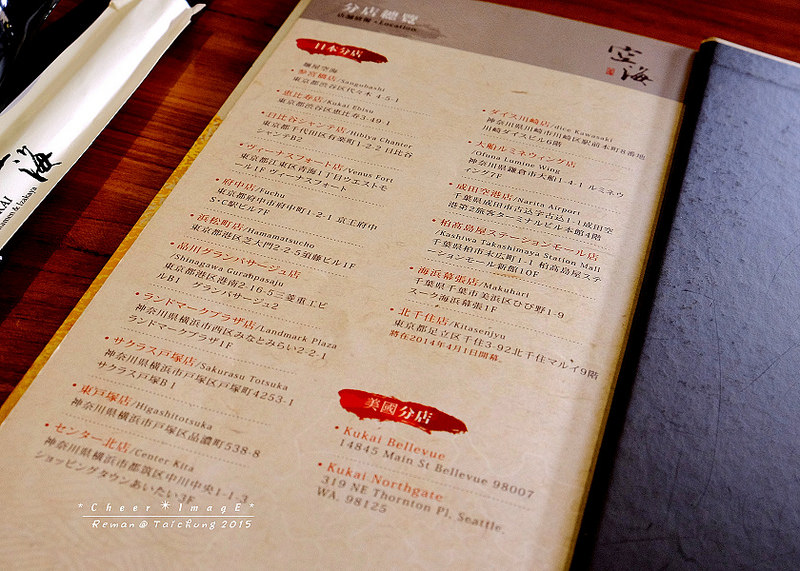 分店總覽
店舖情報・Location
空海
日本分店
麺屋空海
・參宮橋店/Sangubashi
東京都渋谷区代々木 4-5-1
・恵比寿店/Kukai Ebisu
東京都渋谷区恵比寿3-49-1
・日比谷シャンテ店/Hibiya Chanter
東京都千代田区有楽町1-2-2 日比谷
シャンテB2
・ヴィーナスフォート店/Venus Fort
東京都江東区青海1丁目ウエストモ
ール1F ヴィーナスフォート
・府中店/Fuchu
東京都府中市府中町1-2-1 京王府中
S・C駅ビル7F
・浜松町店/Hamamatsucho
東京都港区芝大門2-2-5須藤ビル1F
・品川グランパサージュ店
/Shinagawa Guranpasaju
東京都港区港南2-16-5三菱重工ビ
ルB1 グランパサージュ2
・ランドマークプラザ店/Landmark Plaza
神奈川県横浜市西区みなとみらい2-2-1
ランドマークプラザ1F
・サクラス戸塚店/Sakurasu Totsuka
神奈川県横浜市戸塚区戸塚町4253-1
サクラス戸塚B1
・東戸塚店/Higashitotsuka
神奈川県横浜市戸塚区品濃町538-8
・センター北店/Center Kita
神奈川県横浜市都筑区中川中央1-1-3
ショッピングタウンあいたい3F
・ダイス川崎店/dice Kawasaki
神奈川県川崎市川崎区駅前本町8番地
川崎ダイスビル6階
・大船ルミネウイング店
/Ofuna Lumine Wing
神奈川県鎌倉市大船1-4-1 ルミネウ
ィング7F
・成田空港店/Narita Airport
千葉県成田市古込字古込1-1成田空
港第2旅客ターミナルビル本館4階
・柏高島屋ステーションモール店
/Kashiwa Takashimaya Station Mall
千葉県柏市末広町1-1 柏高島屋ステ
ーションモール新館10F
・海浜幕張店/Makuhari
千葉県千葉市美浜区ひび野1-9
スーク海浜幕張1F
・北千住店/Kitasenjyu
東京都足立区千住3-92北千住マルイ9階
將在2014年4月1日開幕。
美國分店
・Kukai Bellevue
14845 Main St Bellevue 98007
・Kukai Northgate
319 NE Thornton Pl, Seattle,
WA, 98125
海
KAI
Ramen & Izakaya
*Cheer*ImagE*
Reman@Taichung 2015